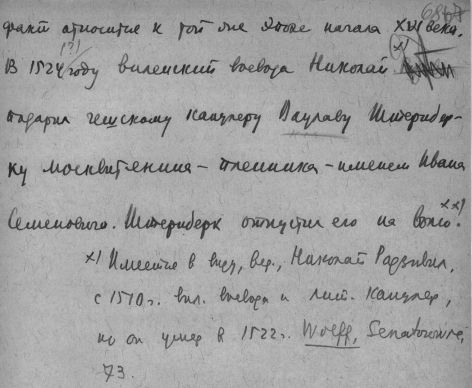 68
факт относится к той же эпохе начала XVI века.
(?)
В 1524 году виленский воевода Николай x)
подарил чешскому канцлеру Вацлаву Штернбер-
ку москвитянина – пленника – именем Ивана
Семеновича. Штернберк отпустил его на волю. xx)
x) Имеется в виду, вер., Николай Радзивил,
с 1510 г. вил. воевода и лит. канцлер,
но он умер в 1522 г. Wolff, Senatorowie,
73.